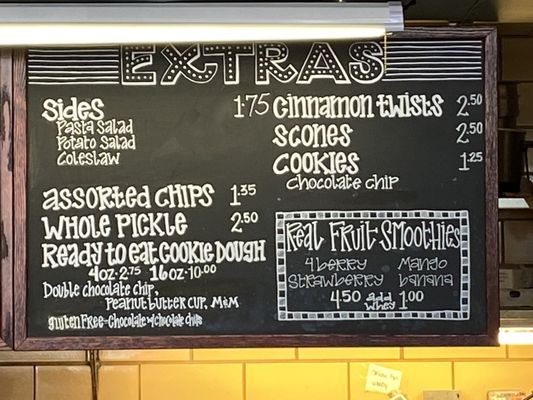 EXTRAS
Sides 1.75
Pasta Salad
Potato Salad
Coleslaw
Assorted Chips 1.35
Whole Pickle 2.50
Ready to eat Cookie Dough
4oz·2.75 16oz·10.00
Double chocolate chip,
Peanut butter cup, M&M
Gluten Free-Chocolate w/chocolate chips
Cinnamon Twists 2.50
Scones 2.50
Cookies 1.25
Chocolate chip
Real Fruit Smoothies
4 Berry Mango
Strawberry banana
4.50 add whey 1.00